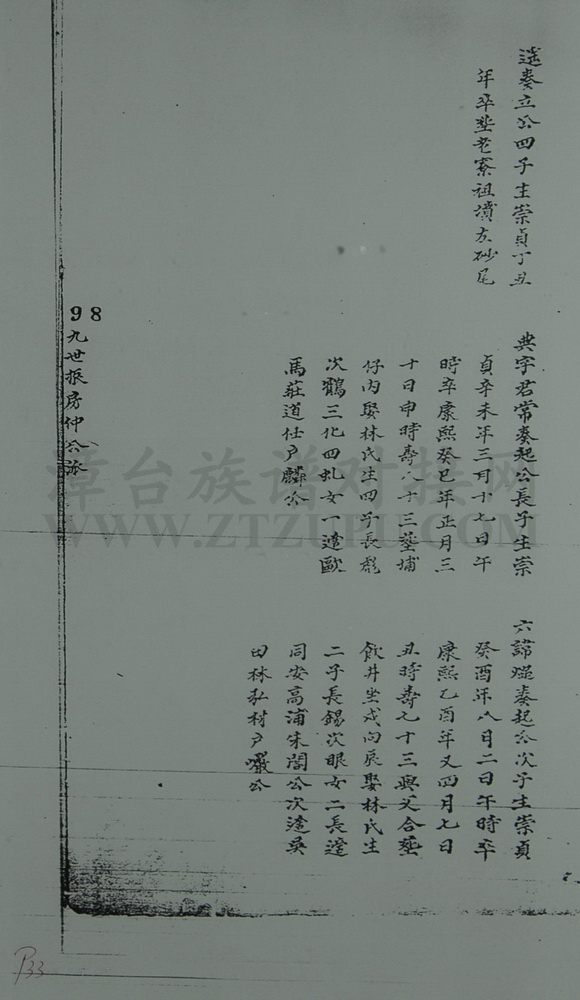 遥奏立公四子生崇貞丁丑
年卒塟老寮祖墳左砂尾
典字君常奏起公長子生崇
貞辛未年三月十七日午
時卒康熙癸巳年正月三
十日申時壽八十三塟埔
仔內娶林氏生四子長彪
次鶴三化四虬女一適歐
馬莊道仕戶麟公
六諱煌奏起公次子生崇貞
癸酉年八月二日午時卒
康熙乙酉年又四月七日
丑時壽七十三與父合塟
飲井坐戌向辰娶林氏生
二子長錫次眼女二長適
同安高浦朱閣公次適吳
田林弘材戶嚴公
98
九世振房仲公派
漳台族谱对接网
WWW.ZTZUPU.COM
P33